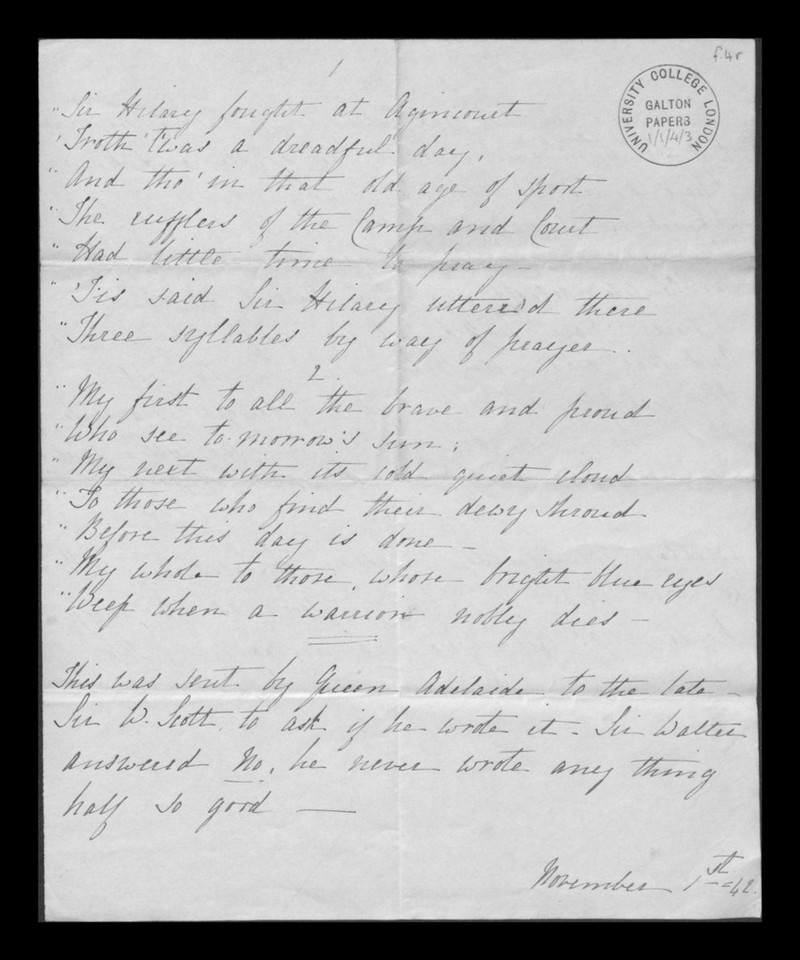 f.4r
UNIVERSITY COLLEGE LONDON
GALTON
PAPERS
1/1/4/3
1
"Sir Hilary fought at Agincourt
'Troth 'twas a dreadful day,
"And tho' in that old age of sport
"The rufflers of the Camp and Court
"Had little time to pray —
"'Tis said Sir Hilary utter'd there
"Three syllables by way of prayer..
2.
"My first to all the brave and proud
"Who see to-morrow's sun;
"My next with its cold quiet cloud
"To those who find their dewy shroud
"Before this day is done —
"My whole to those, whose bright blue eyes
"Weep when a warrior nobly dies —
This was sent by Queen Adelaide to the late —
Sir W. Scott, to ask if he wrote it — Sir Walter
answered No, he never wrote any thing
half so good —
November 1st =42.